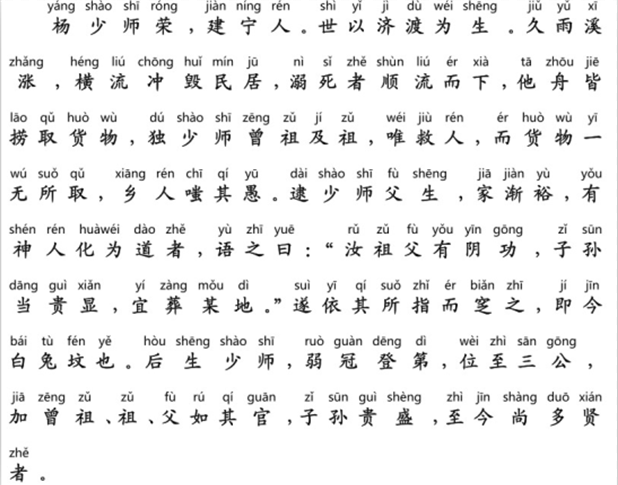 yáng shào shī róng jiàn níng rén shì yǐ jì dù wéi shēng jiǔ yǔ xī
杨少师荣，建宁人。世以济渡为生。久雨溪
zhǎng héng liú chōng huǐ mín jū nì sǐ zhě shùn liú ér xià tā zhōu jiē
涨，横流冲毁民居，溺死者顺流而下，他舟皆
lāo qǔ huò wù dú shào shī zēng zǔ jí zǔ wéi jiù rén ér huò wù yī
捞取货物，独少师曾祖及祖，唯救人，而货物一
wú suǒ qǔ xiāng rén chī qí yū dài shào shī fù shēng jiā jiàn yù yǒu
无所取，乡人嗤其愚。逮少师父生，家渐裕，有
shén rén huàwéi dào zhě yù zhī yuē rǔ zǔ fù yǒu yīn gōng zǐ sūn
神人化为道者，语之曰：“汝祖父有阴功，子孙
dāng guì xiǎn yí zàng mǒu dì suì yī qí suǒ zhǐ ér biǎn zhī jí jīn
当贵显，宜葬某地。”遂依其所指而窆之，即今
bái tù fén yě hòu shēng shào shī ruò guàn dēng dì wèi zhì sān gōng
白兔坟也。后生少师，弱冠登第，位至三公，
jiā zēng zǔ zǔ fù rú qí guān zǐ sūn guì shèng zhì jīn shàng duō xián
加曾祖、祖、父如其官，子孙贵盛，至今尚多贤
zhě
者。